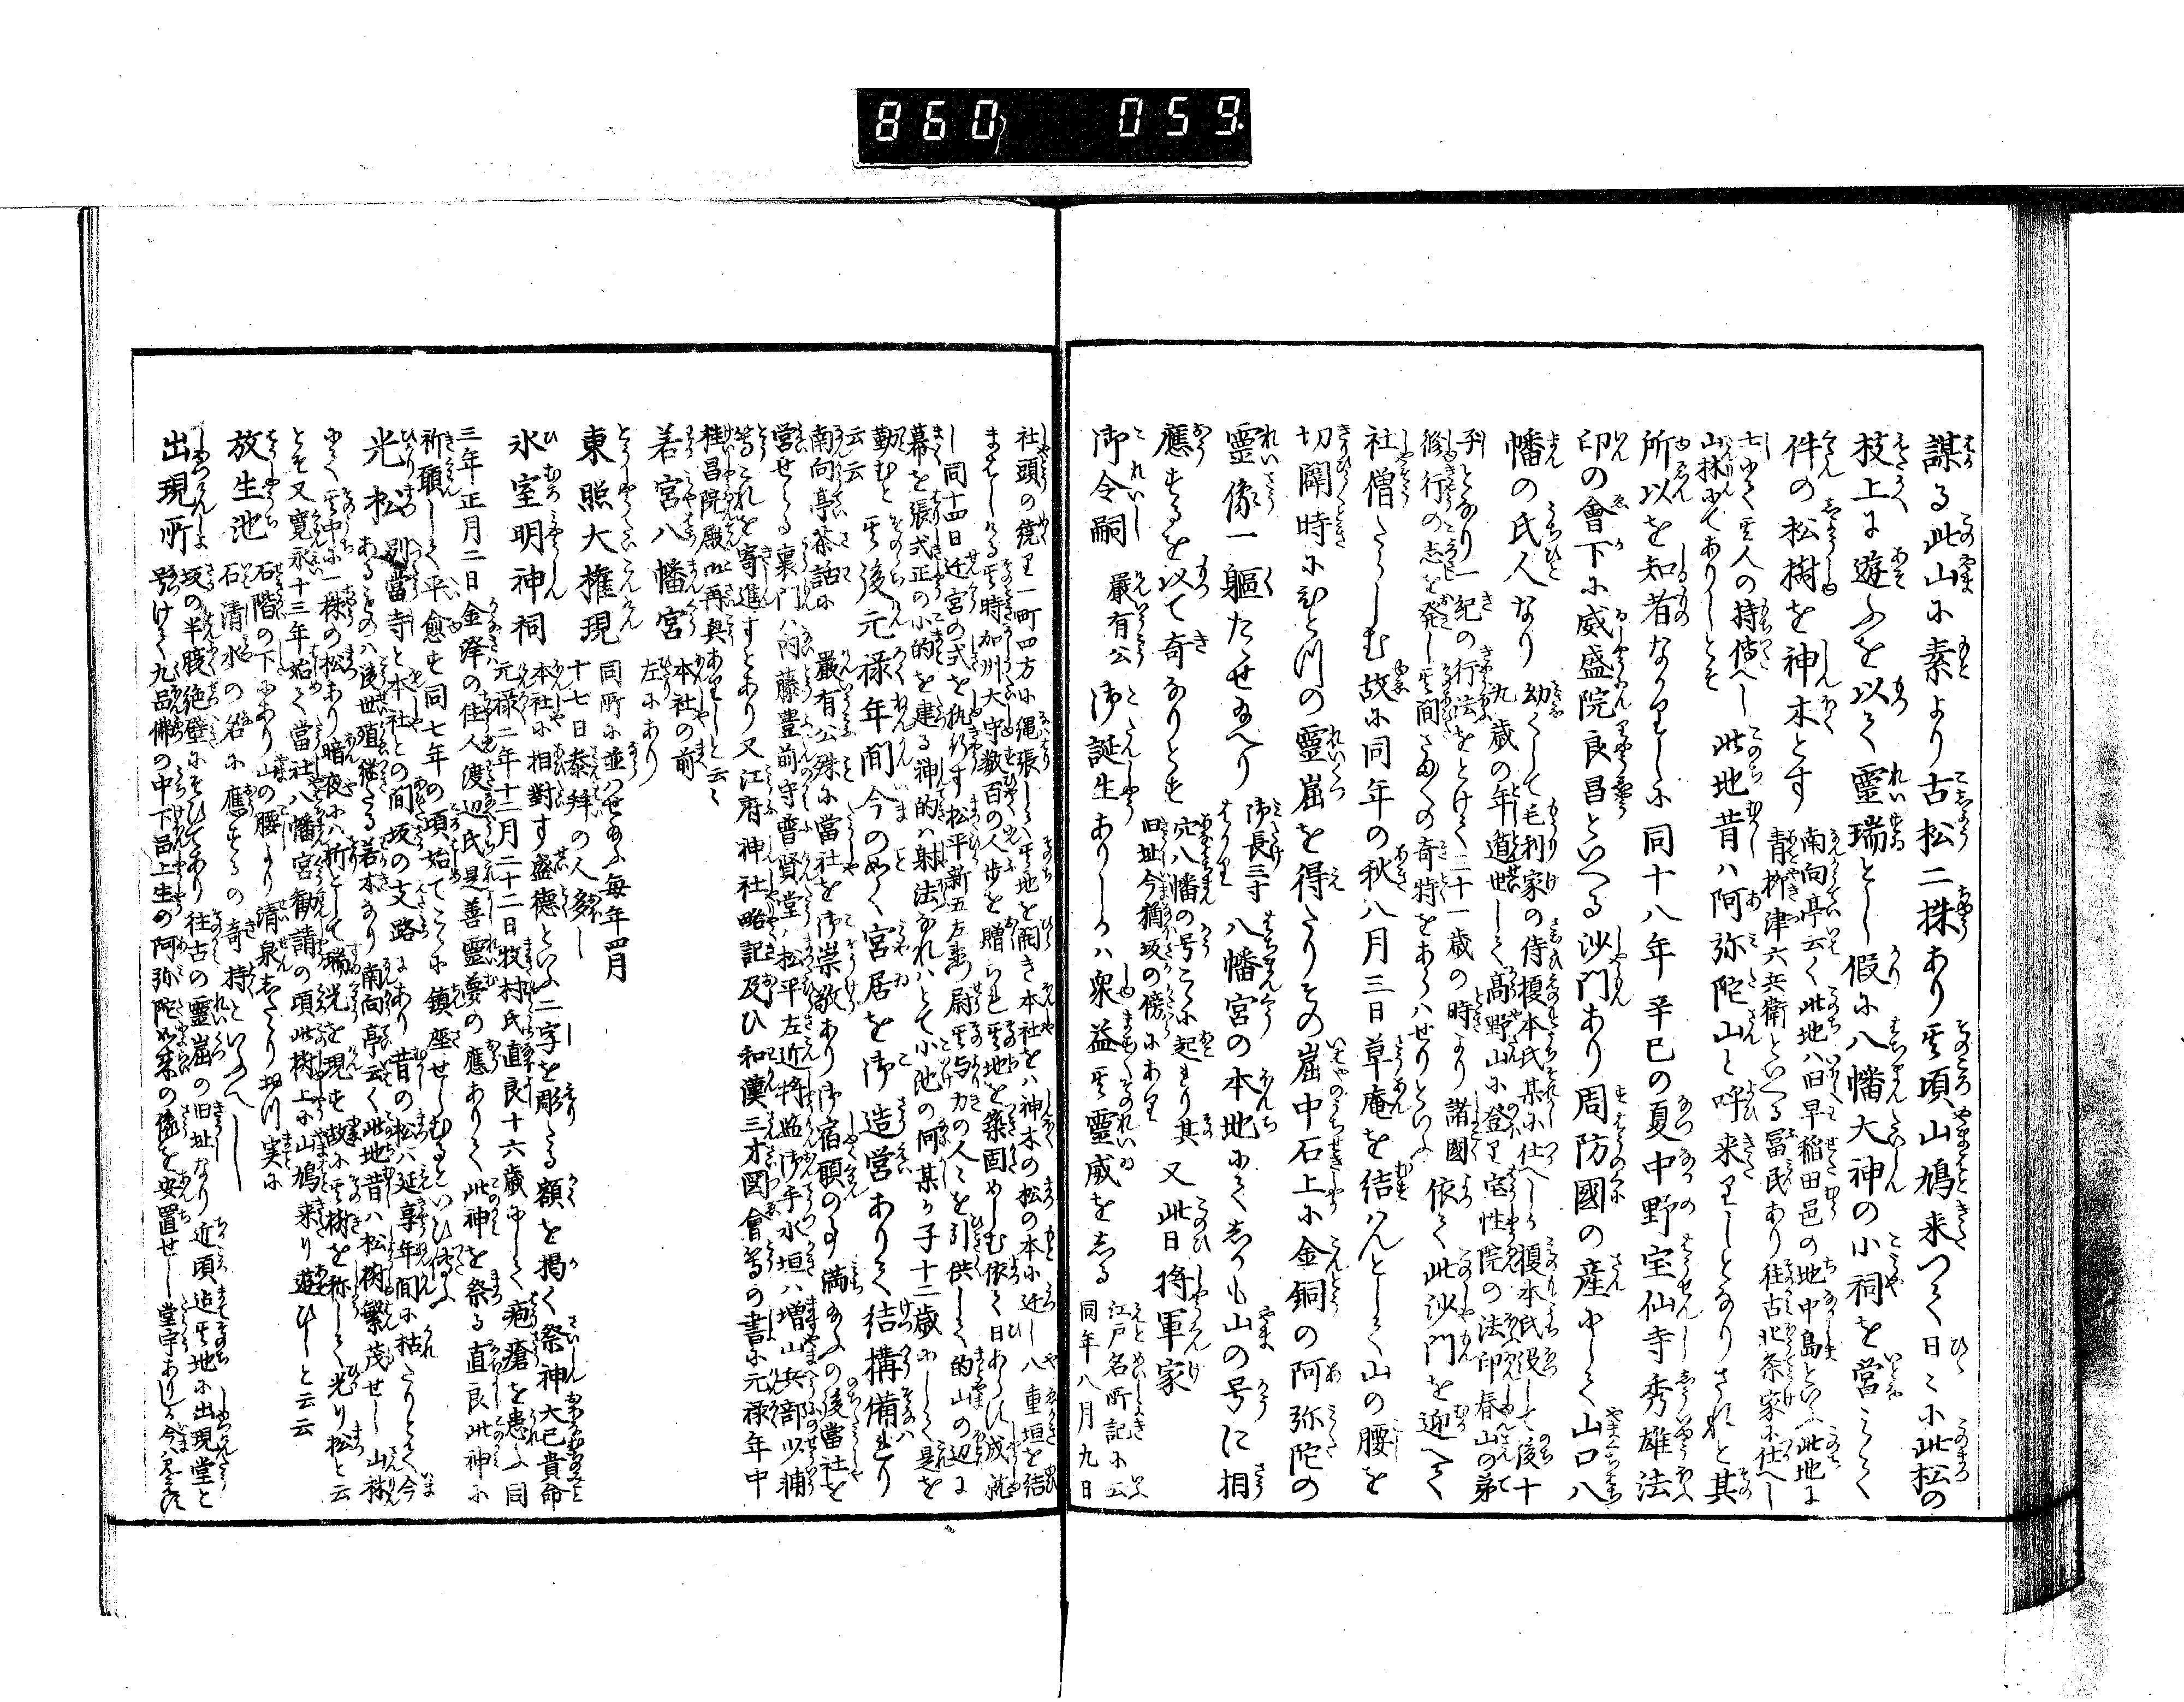 860 059
謀る此山に素より古松二株あり其頃山鳩来つて日々に此松の
枝上に遊ふを以て霊瑞とし假に八幡大神の小祠を営みて
件の松樹を神木とす
南向亭云く此地ハ旧早稲田邑の地中島といふ此地に
青栁津六兵衛といへる冨民あり往古北条家に仕へし
士にて其人の持傳へし
山林にてありしとそ
此地昔ハ阿弥陀山と呼来りしとなりされと其
所以を知者なかりしに同十八年辛巳の夏中野宝仙寺秀雄法
印の會下に威盛院良昌といへる沙門あり周防國の産にして山口八
幡の氏人なり
幼くして毛利家の侍榎本氏某に仕へしか榎本氏没して後十
九歳の年遁世して髙野山に登り宝性院の法印春山の弟
子となり一紀の行法をとけて二十一歳の時より諸國
修行の志を発し其間さま〳〵の奇特をあらハせりといふ
依て此沙門を迎へて
社僧たらしむ故に同年の秋八月三日草庵を結ハんとして山の腰を
切闢時にひとつの霊窟を得たりその窟中石上に金銅の阿弥陀の
霊像一軀たゝせ給へり
御長三寸
八幡宮の本地にてしかも山の号に相
應するを以て奇なりとす
穴八幡の号こゝに起まり其
旧址今猶坂の傍にあり
又此日将軍家
御令嗣
嚴有公
御誕生ありしかハ衆益其霊威をしる
江戸名所記に云
同年八月九日
社頭の繞り一町四方に縄張しハ其地を開き本社をハ神木の松の本に近し八重垣を結
まはしける其時加州大守数百の人歩を贈られ其地を築固めしむ依て日あらす成就
し同十四日迁宮の式を執行す松平新五左衛門尉其与力の人々を引供して的山の辺に
幕を張弐正の小的を建る神的ハ射法なれハとて小池の何某か子十二歳にして是を
勤むと
云云
其後元禄年間今の如く宮居を御造営ありて結構備れり
南向亭茶話に嚴有公殊に當社を御崇敬あり御宿願の事満給ふの後當社を
営せらる裏門ハ内藤豊前守普賢堂ハ松平左近将監御手水垣ハ増山兵部少輔
等これを寄進すとあり又江府神社略記及ひ和漢三才図會等の書に元禄年中
桂昌院殿御再興ありしと云々
若宮八幡宮
本社の前
左にあり
東照大権現
同所に並ハせ給ふ毎年四月
十七日参拜の人多し
氷室明神祠
本社に相對す盛德といふ二字を彫たる額を掲く祭神大己貴命
元禄二年十二月二十二日牧村氏直良十六歳にして疱瘡を患ふ同
三年正月二日金澤の住人渡辺氏是善霊夢の應ありて此神を祭る直良此神に
祈願して平愈す同七年の頃始てこゝに鎮座せしむるといひ傳ふ
光松
別當寺と本社との間坂の支路にあり昔の松ハ延享年間に枯たりとて今
あるところのハ後世殖継たる若木なり南向亭云く此地昔ハ松樹繁茂せし山林
にて其中に一株の松あり暗夜にハ折として瑞光を現す故に其樹を称して光り松と云
とそ又寛永十三年始て當社八幡宮勧請の頃此樹上に山鳩来り遊ひしと云云
放生池
石階の下にあり山の腰より清泉したゝり切川実に
石清水の名に應するの奇特といふへし
出現所
坂の半腹絶壁にそひてあり往古の霊窟の旧址なり近頃迠其地に出現堂と
號けて九品佛の中下品上生の阿弥陀如来の像を安置せし堂宇ありしか今ハ見えす